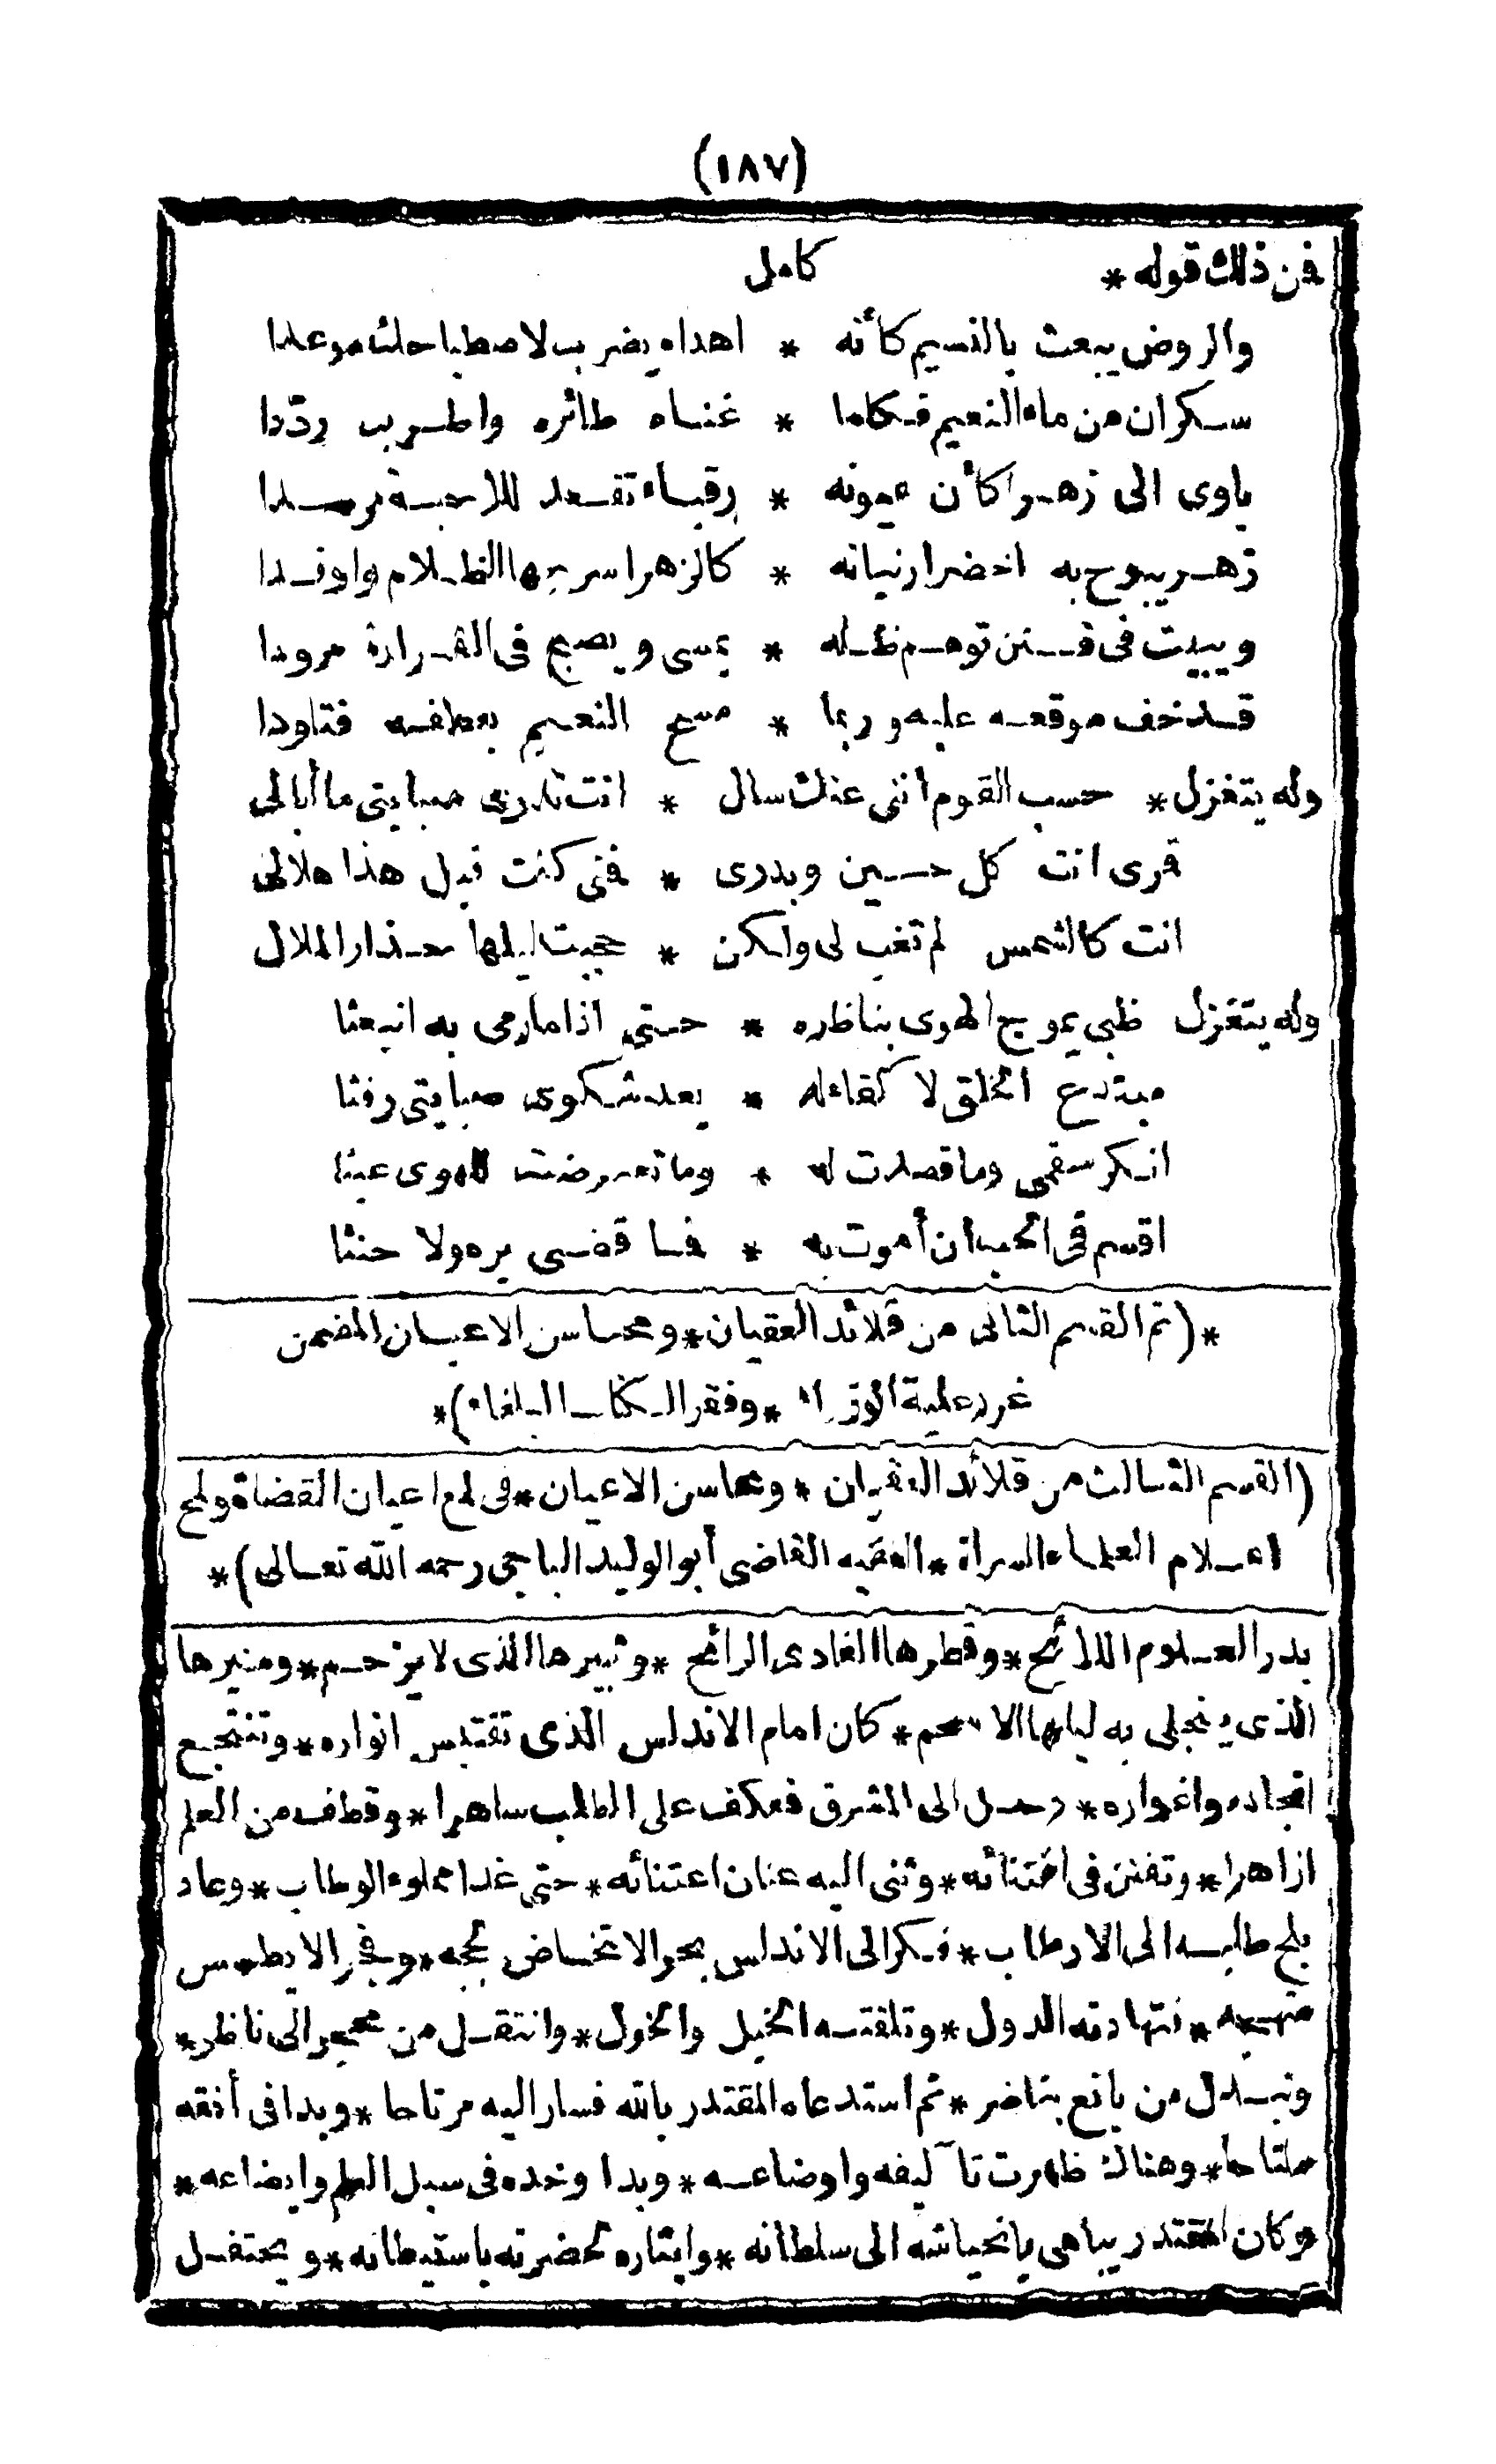 (١٨٧)
فن ذلك قوله * كامل
والروض يبعث بالنسيم كأنه * اهداه يضرب لاصطباحك موعدا
سكران من ماء النعيم فكلما * غناه طائره واطرب رددا
ياوى الى زهر كأن عيونه * رقباء تقعد للاحبة مرصدا
زهر يبوح به اخضرار نباته * كالزهر اسرجها الظلام واوقدا
ويبيت فى فنن توهم ظله * يمسى ويصبح فى القرارة مرودا
قد خف موقعه عليه وربما * مسح النعيم بعطفه فتاودا
وله يتغزل * حسب القوم أننى عنك سال * انت تدرى صبابتى ما أبالى
قرى انت كل حين وبدرى * فتى كنت قبل هذا هلالى
انت كالشمس لم تغب لى ولكن * حجبت ليلها حذار الملال
وله يتغزل ظبى يموج الهوى بناظره * حتى اذا ما رمى به انبعثا
مبتدع الخلق لا كفاءله * يعد شكوى صبابتى رفثا
انكر سقمى وما قصدت له * وما تعرضت للهوى عبثا
اقسم فى الحب ان أموت به * فما قضى بره ولا حنثا
*(تم القسم الثانى من قلائد العقيان * ومحاسن الاعيان المضمن
غرر علية الوزراء * وفقر الكتاب البلغاء)*
(القسم الثالث من قلائد العقيان * ومحاسن الاعيان * فى لمع اعيان القضاة ولمح
اعلام العلماء السراة * الفقيه القاضى أبو الوليد الباجى رحمه الله تعالى)*
بدر العلوم اللائح * وقطرها الغادى الرائح * وثبيرها الذى لا يزحم * ومنيرها
الذى ينجلى به ليلها الاسحم * كان امام الاندلس الذى تقتبس انواره * وتنتجع
انجاده واغواره * رحل الى المشرق فعكف على الطلب ساهرا * وقطف من العلم
ازاهرا * وتفنن فى اقتنائه * وثنى اليه عنان اعتنائه * حتى غدا مملوء الوطاب * وعاد
بلح طلبه الى الارطاب * فكر الى الاندلس بحر الاتخاض لججه * وفجر الايطمس
منهجه * فتهادته الدول * وتلقته الخيل والخول * وانتقل من محجر الى ناظر *
وتبدل من يانع بناضر * ثم استدعاه المقتدر بالله فسار اليه مرتاحا * وبدا فى أفقه
ملتاحا * وهناك ظهرت تآليفه واوضاعه * وبدا وخده فى سبل العلم وايضاعه *
وكان المقتدر يباهى بانحياشه الى سلطانه * وايثاره لحضرته باستيطانه * ويحتفل